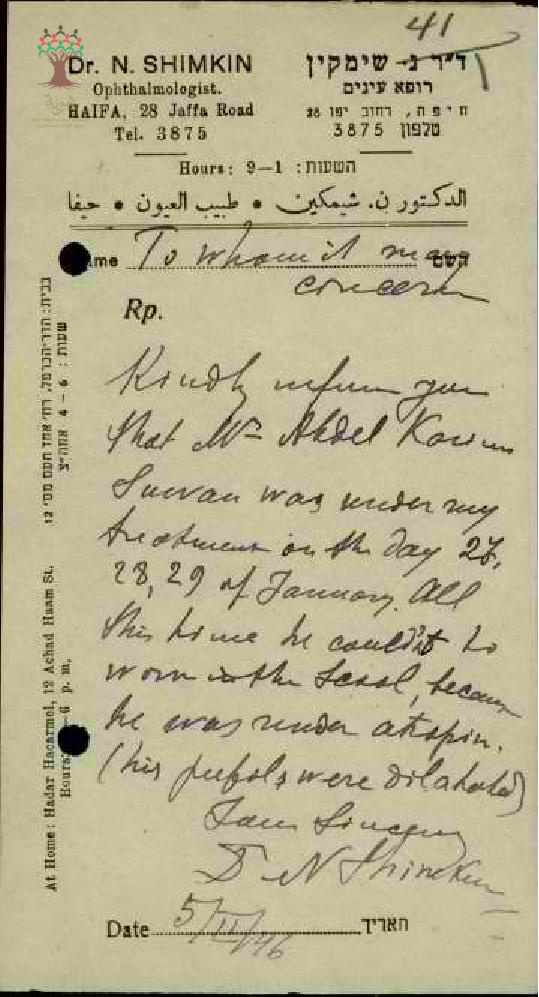 41
Dr. N. SHIMKIN
Ophthalmologist.
HAIFA, 28 Jaffa Road
Tel. 3875
ד״ר נ. שימקין
רופא עינים
חיפה, רחוב יפו 28
טלפון 3875
Hours: 9–1 :השעות
الدكتور ن. شيمكين • طبيب العيون • حيفا
ame To whom it may השם
concern
Rp.
Kindly inform you
that Mr Abdel Karim
was under my
treatment on the day 27,
28, 29 of January. All
this time he could'nt to
work in the scool, becaus
he was under atropin.
(his pupols were dilahated)
I am Sincerly
Dr N Shimkin
Date 5/II/46 תאריך
At Home: Hadar Hacarmel, 12 Achad Haam St.
Hours: –6 p. m.
בבית: הדר־הכרמל, רח׳ אחד העם מס׳ 12
שעות: 4–6 אחה״צ